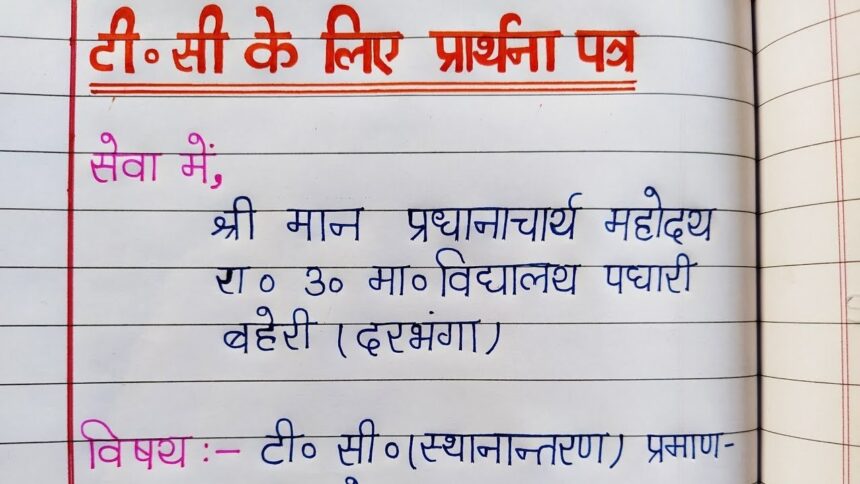 टी० सी के लिए प्रार्थना पत्र
सेवा में,
श्री मान प्रधानाचार्य महोदय
रा० उ० मा० विद्यालय पघारी
बहेरी (दरभंगा)
विषय :- टी० सी० (स्थानान्तरण) प्रमाण-